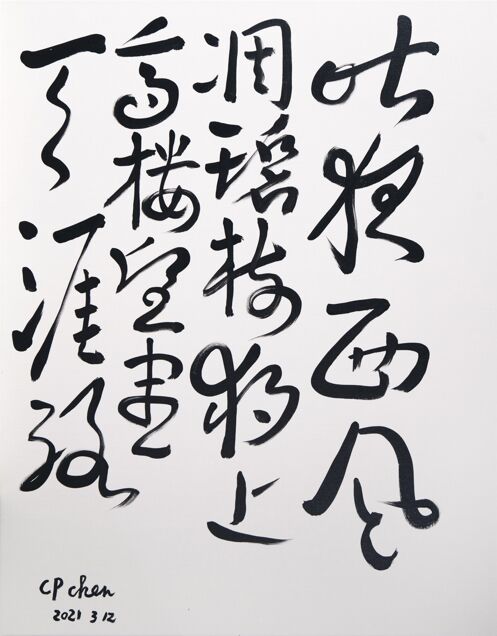 昨夜西风
凋碧树独上
高楼望盡
天涯路
CP chen
2021 3 12